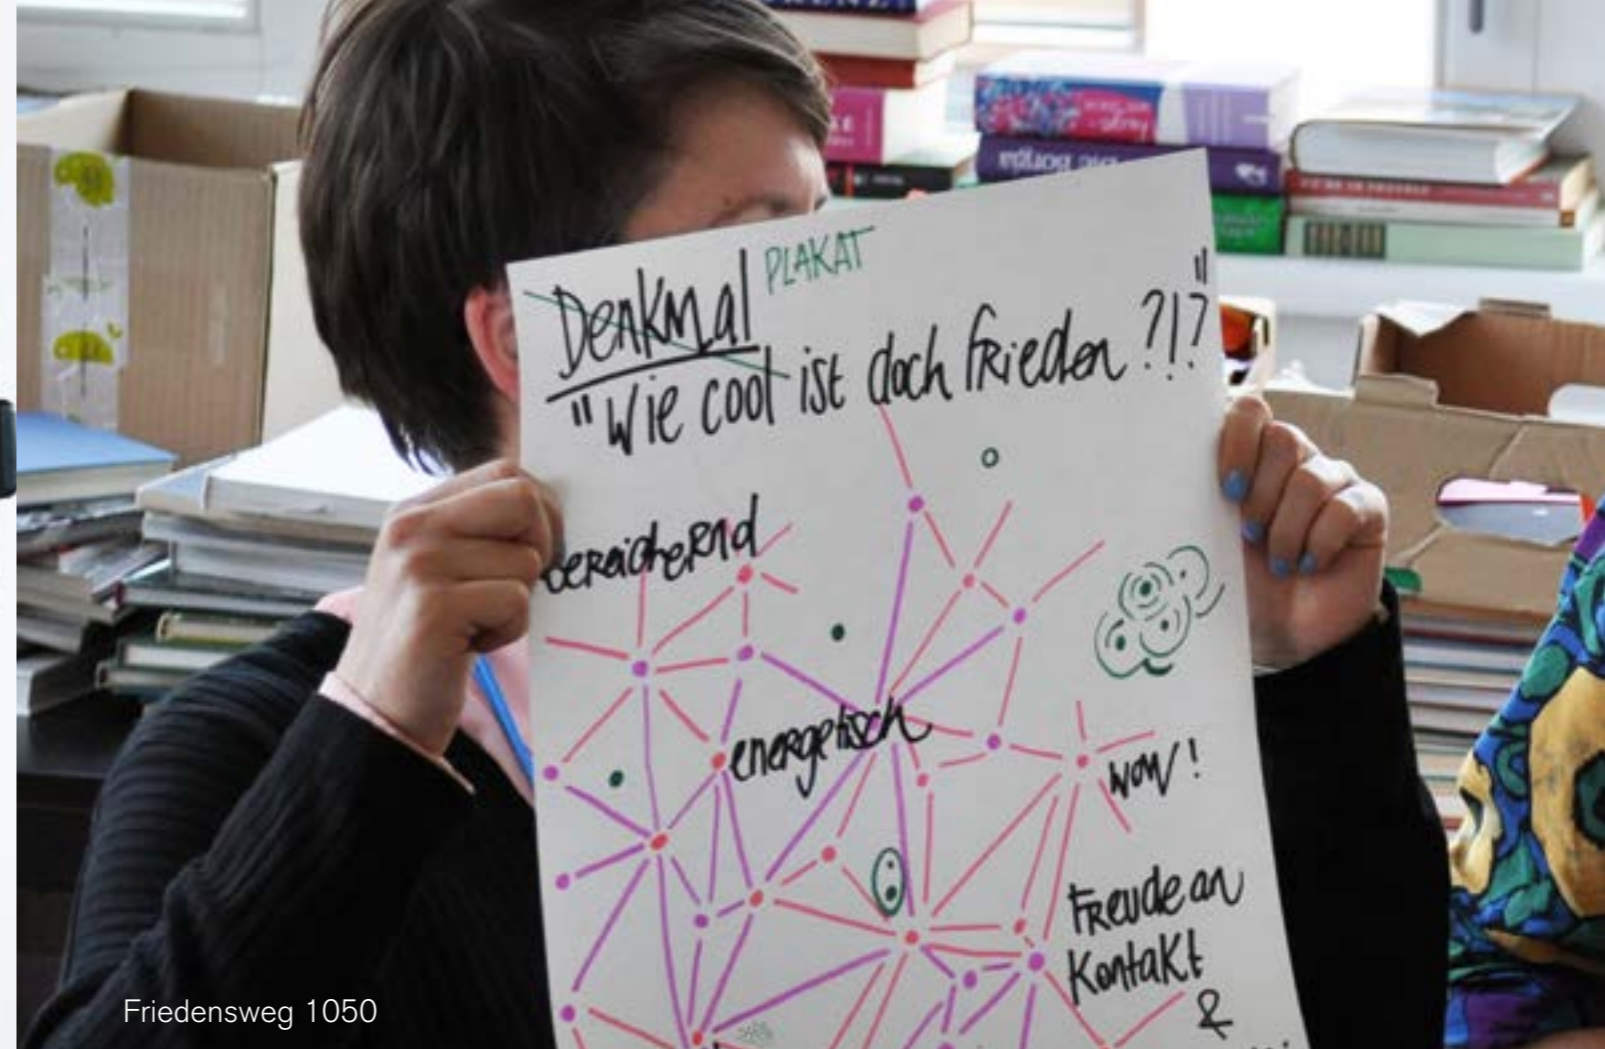 Denkmal PLAKAT
"Wie cool ist doch Frieden ?!?"
bereichernd
energetisch
wow!
Freude an
Kontakt
&
Friedensweg 1050